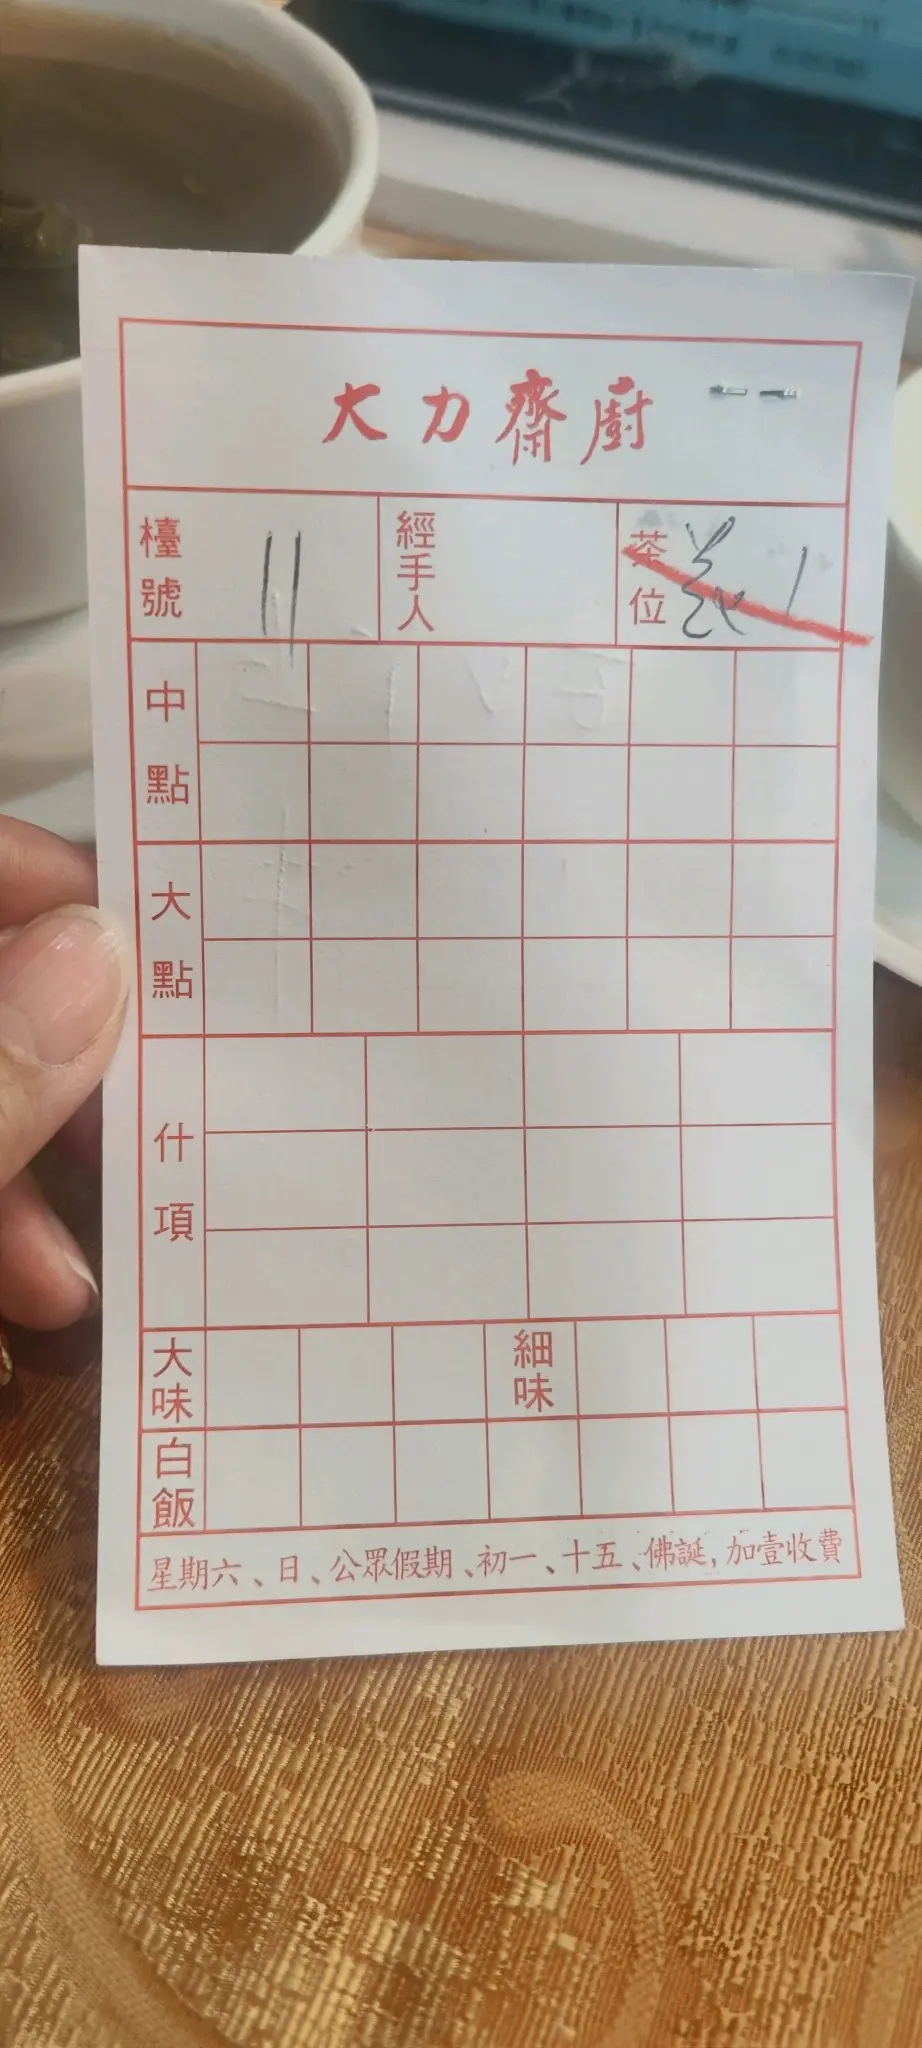 大力齋廚
檯號 11
經手人
茶位 1
中點
大點
什項
大味
細味
白飯
星期六、日、公眾假期、初一、十五、佛誕,加壹收費